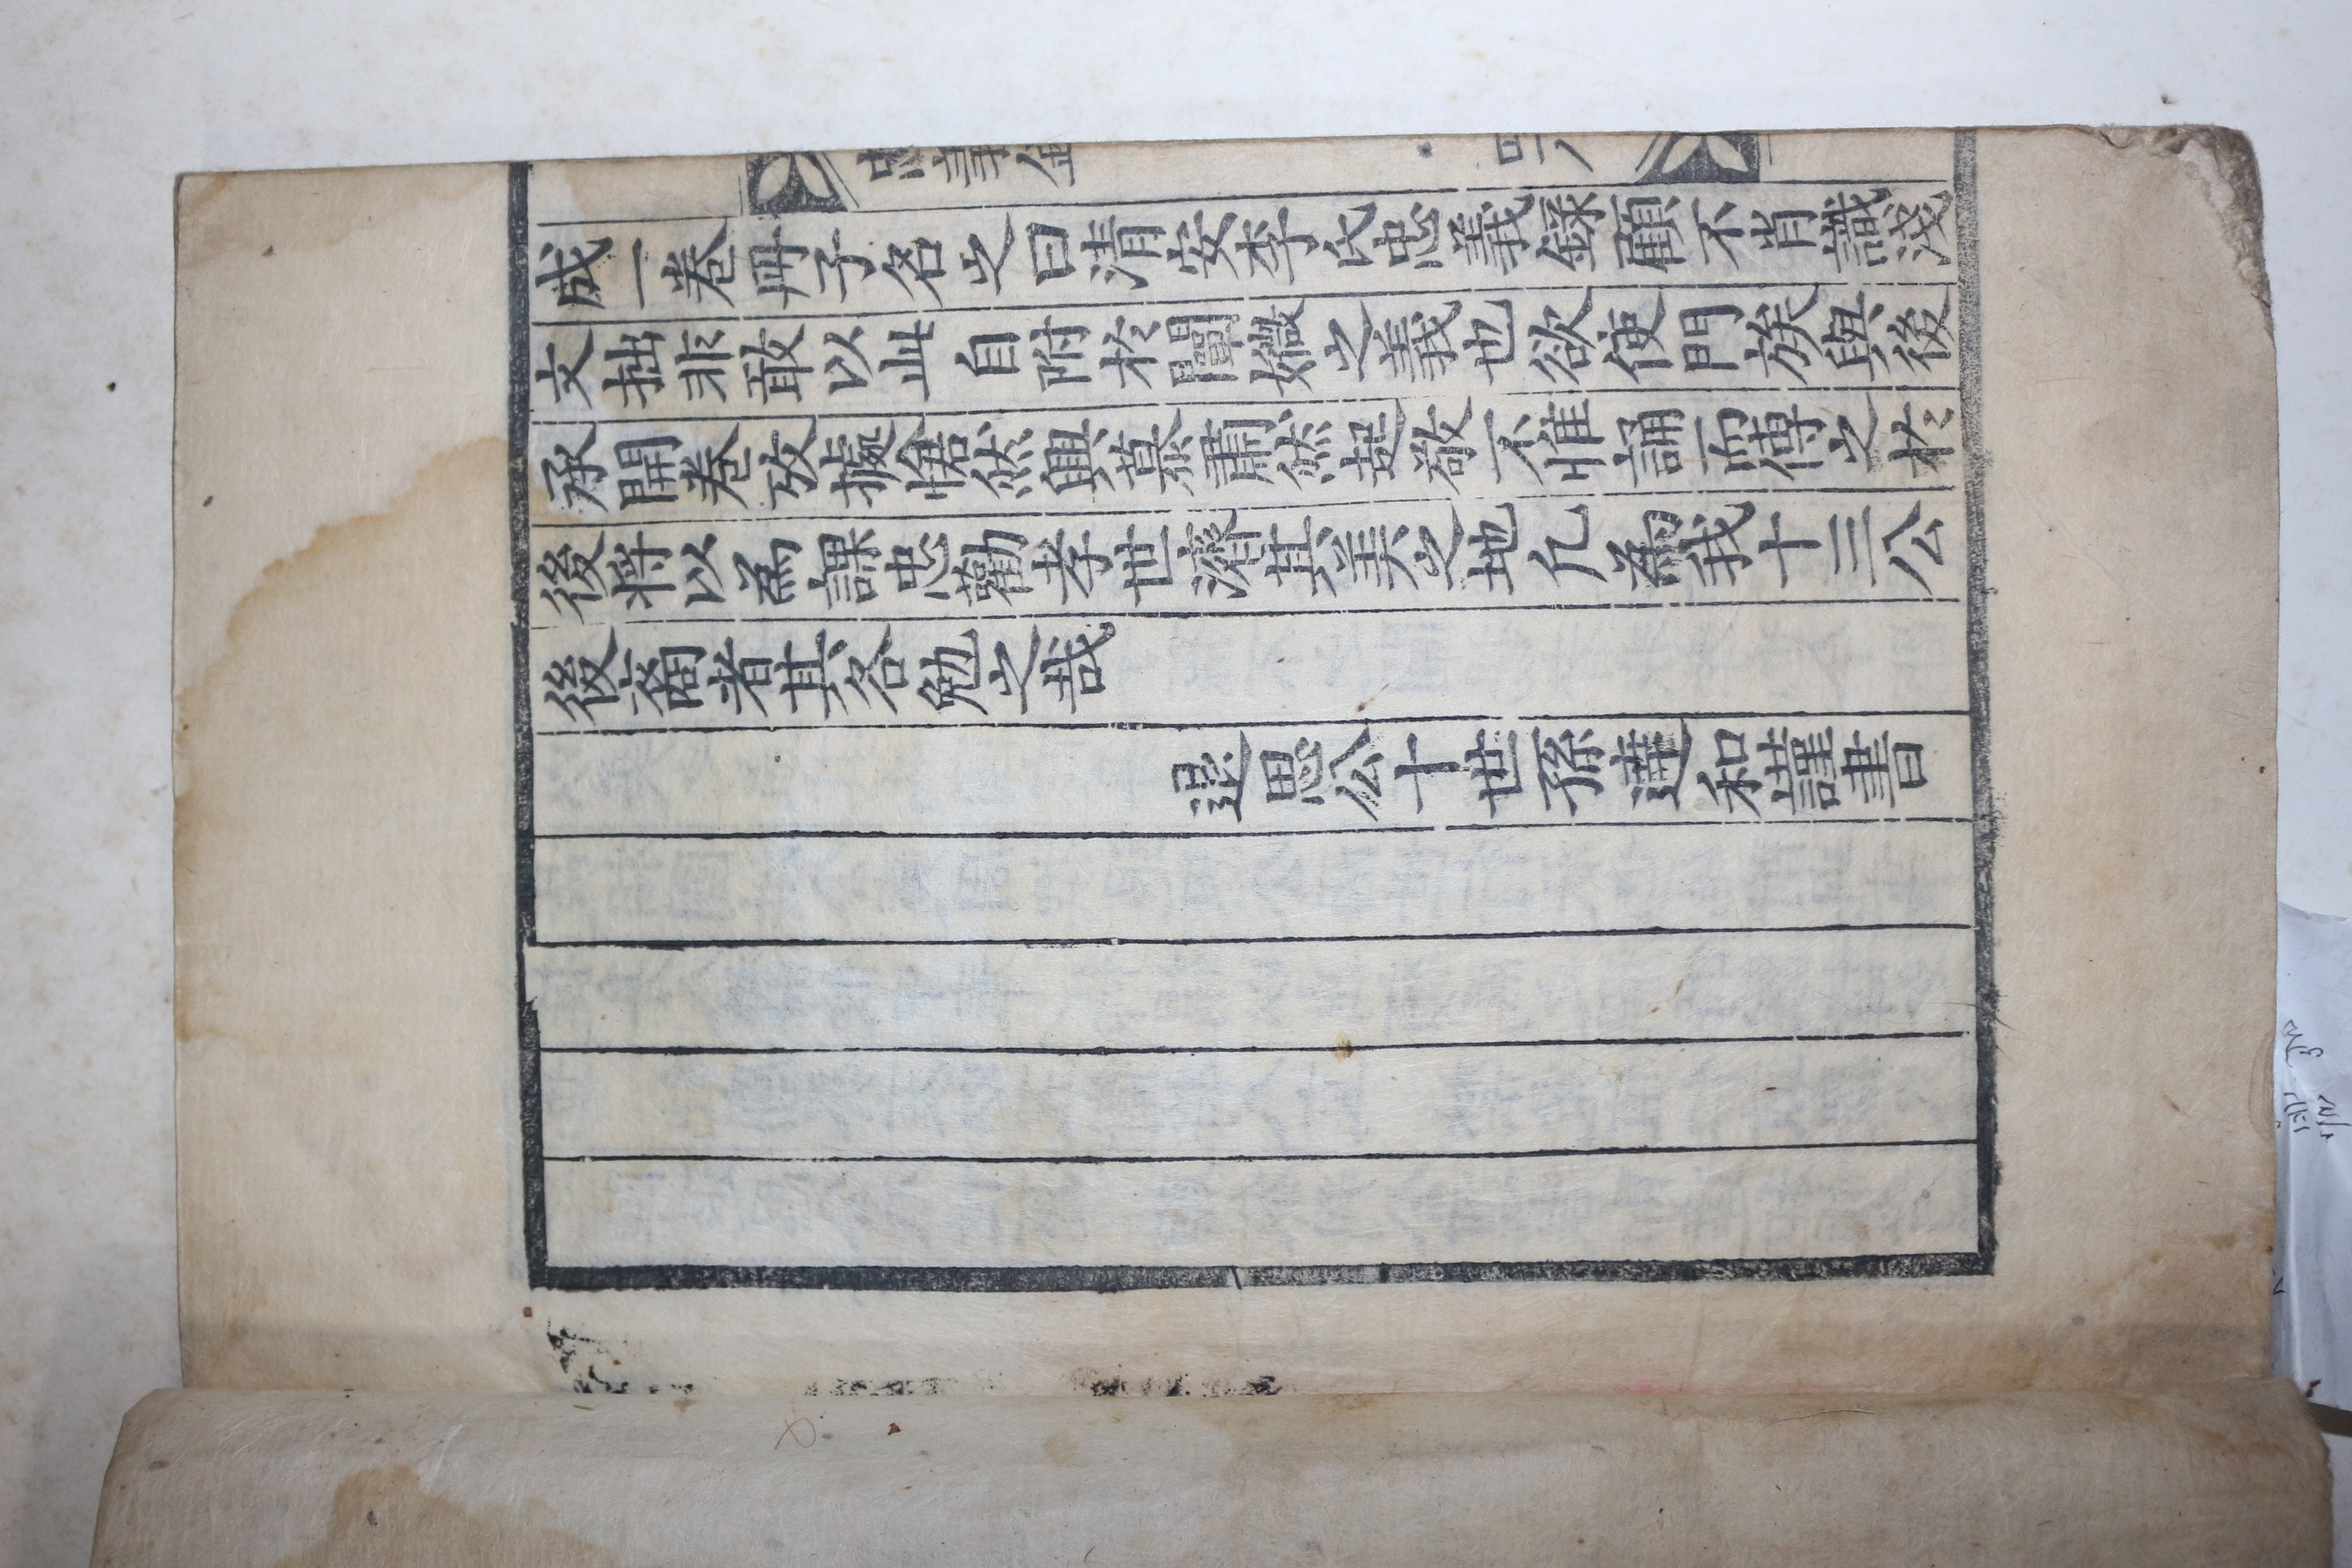 成一卷冊子名之曰清安李氏忠義錄顧不肖識淺
文拙非敢以此自附於闡媺之義也欲使門族與後
承開卷攷據愴然興慕肅然起敬不惟誦而傳之於
後將以爲課忠勸孝世濟其美之地凡爲我十三公
後裔者其各勉之哉
退思公十世孫蓮和謹書